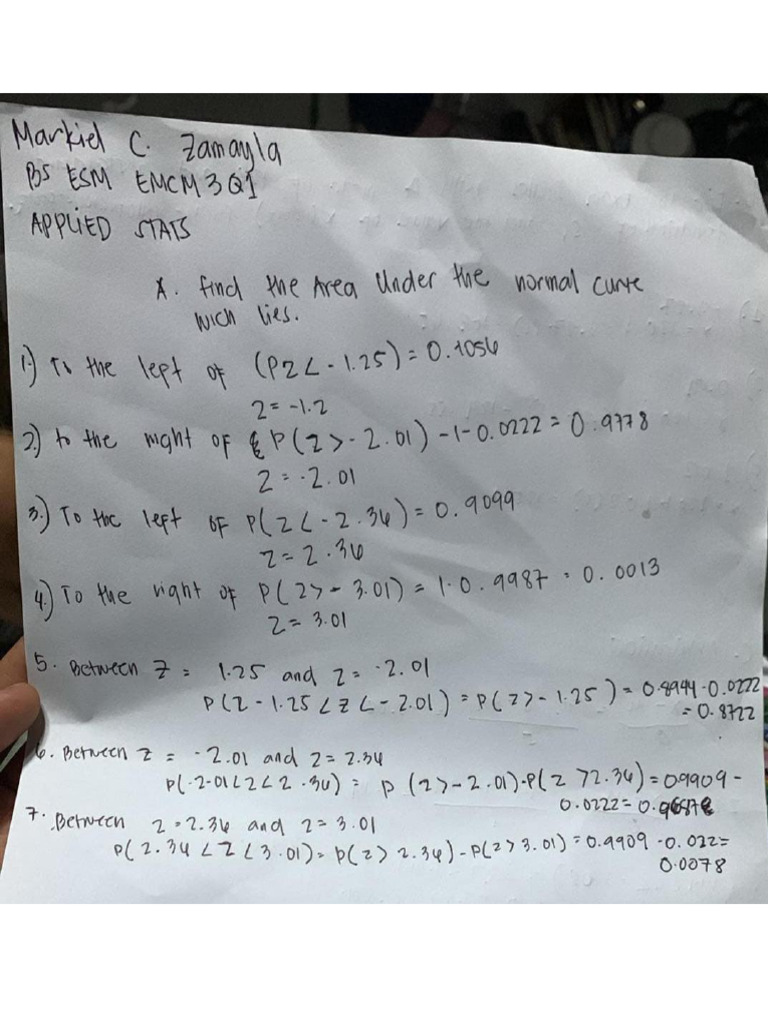 Markiel C. Zamayla
BS ESM EMCM 3Q1
APPLIED STATS
A. find the Area Under the normal curve
wich lies.
1.) To the left of (PZ < -1.25) = 0.1056
Z = -1.2
2.) to the right of P(Z > -2.01) -1-0.0222 = 0.9778
Z = -2.01
3.) To the left of P(Z < -2.36) = 0.9099
Z = 2.36
4.) To the right of P(Z > - 3.01) = 1-0.9987 = 0.0013
Z = 3.01
5. Between Z = 1.25 and Z = -2.01
P(Z - 1.25 < Z < - 2.01) = P(Z > - 1.25) = 0.8944-0.0222
= 0.8722
6. Between Z = -2.01 and Z = 2.36
P(-2.01 < Z < 2.36) = P (Z > -2.01)-P(Z > 2.36) = 0.9909 -
0.0222 =
7. Between Z = 2.36 and Z = 3.01
P(2.36 < Z < 3.01) = P(Z > 2.36) - P(Z > 3.01) = 0.9909 -0.022 =
0.0078